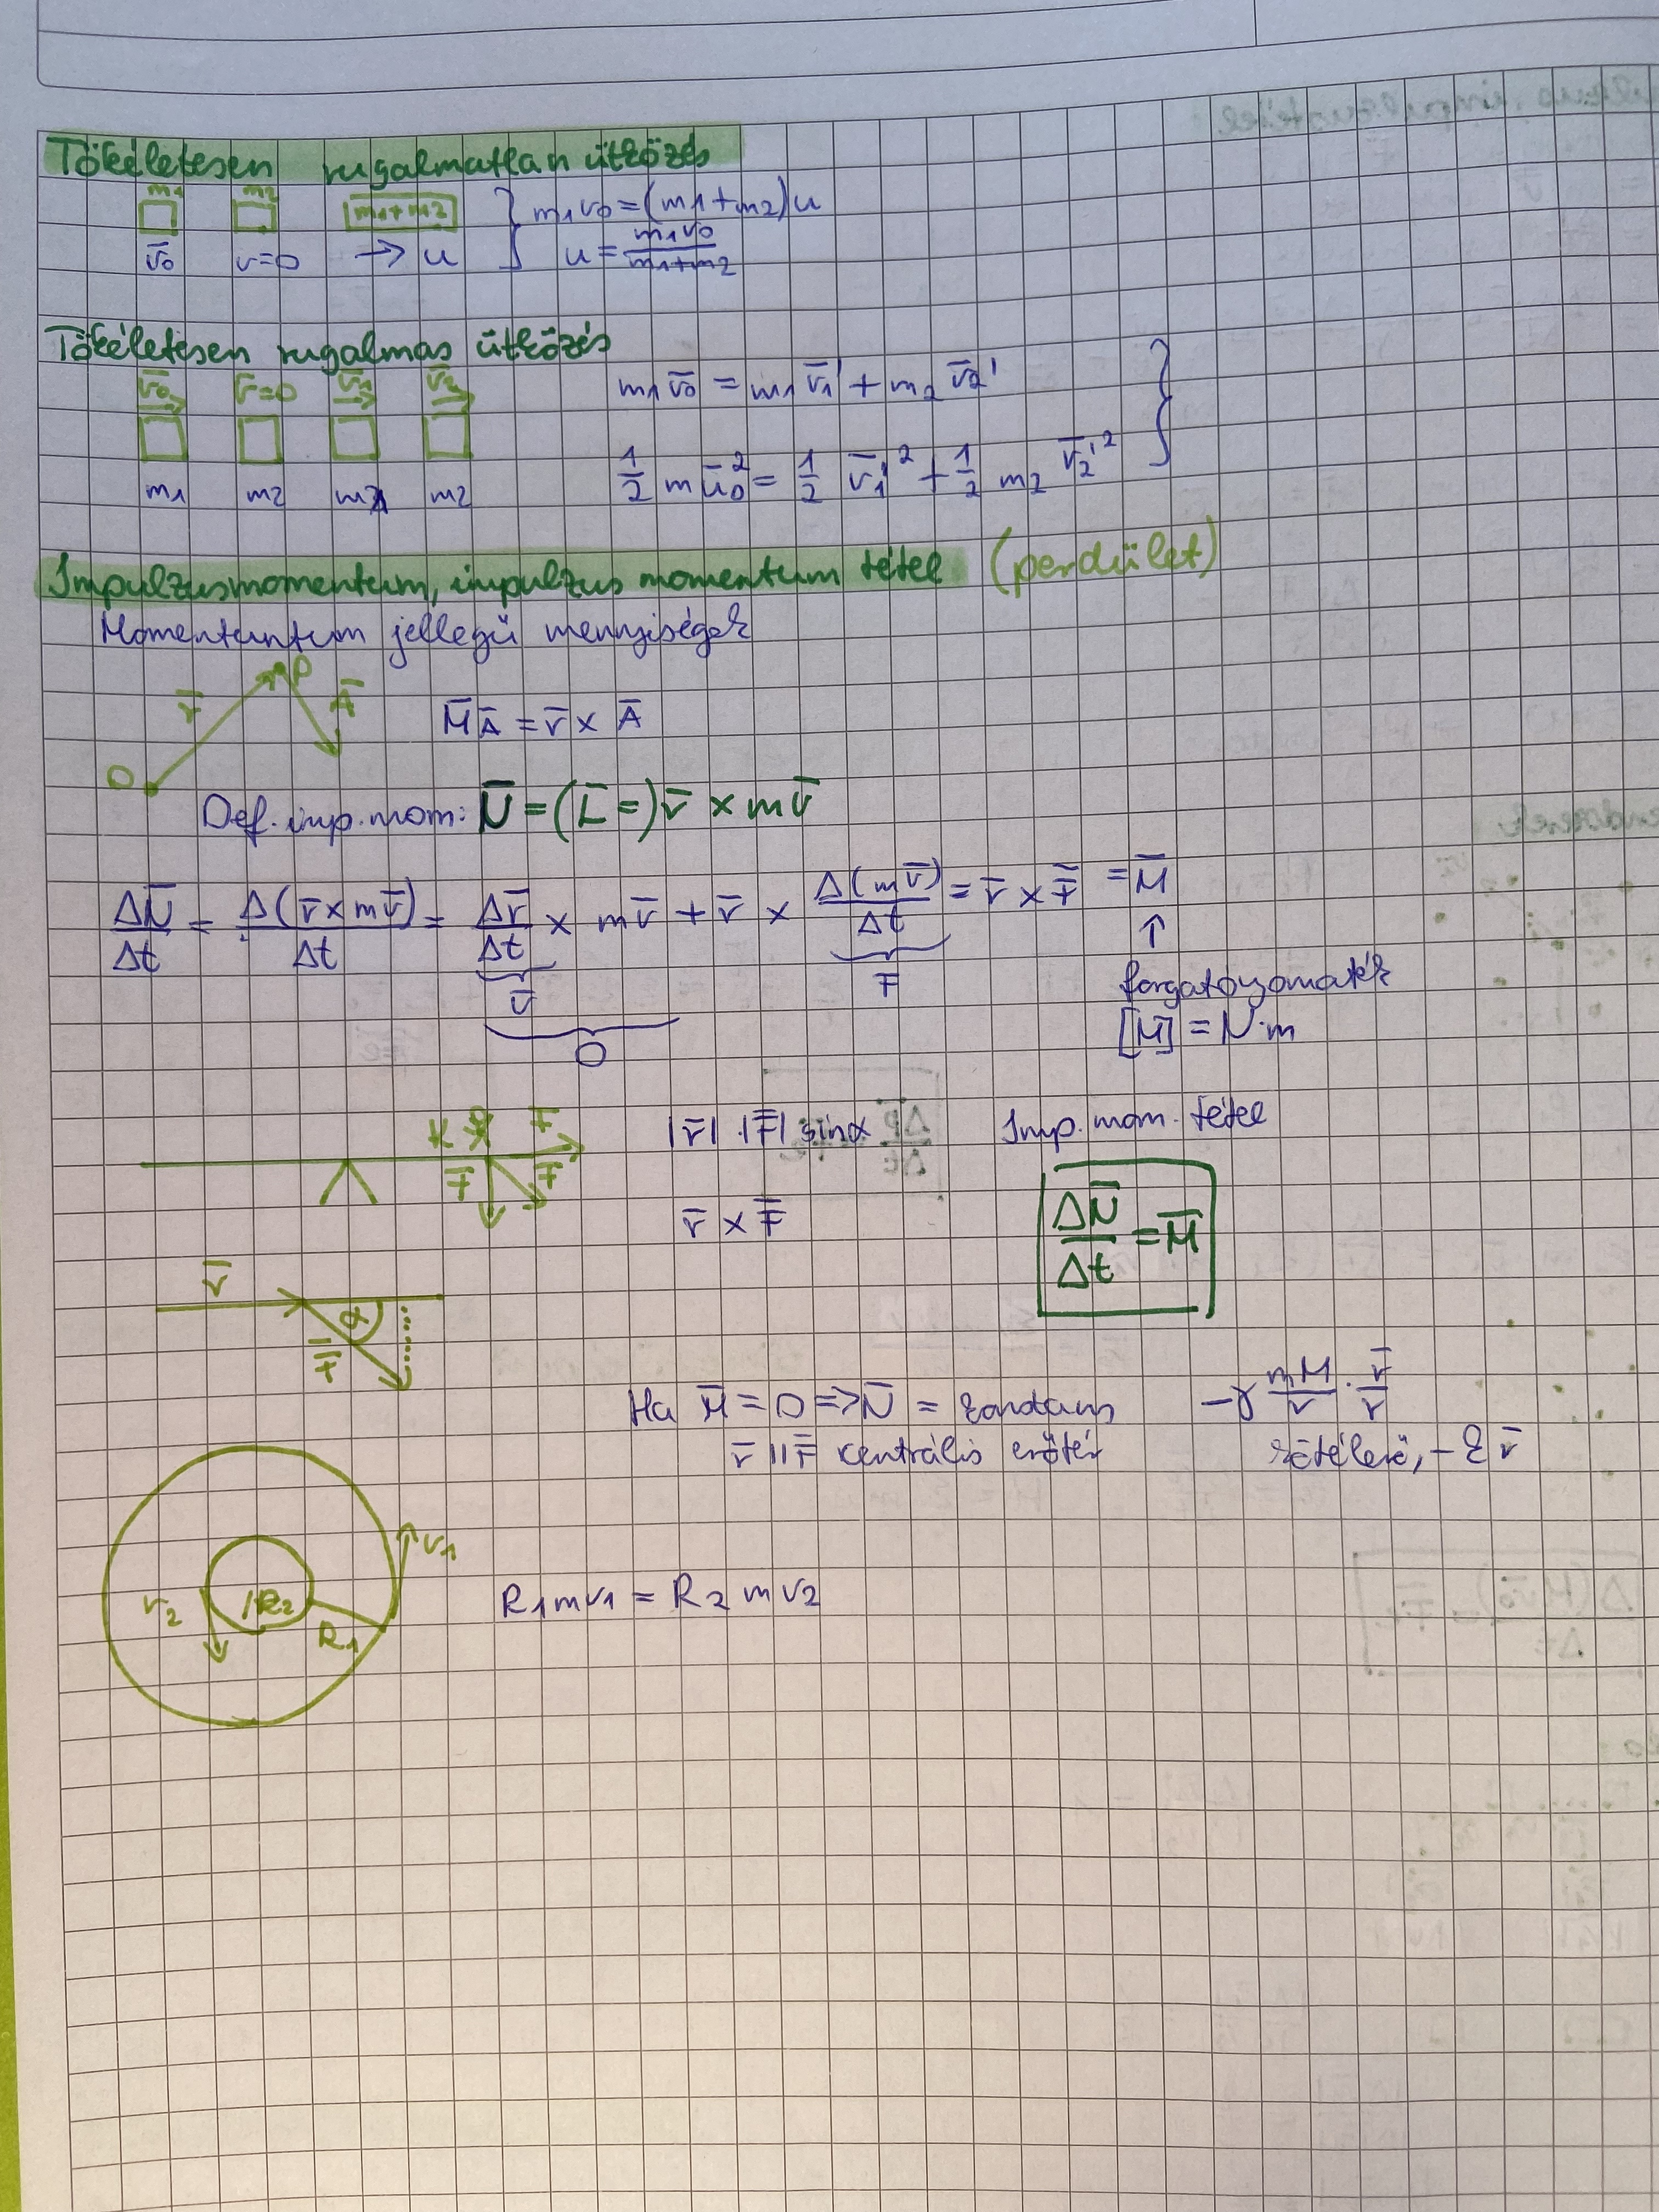 Tökéletesen rugalmatlan ütközés
m1 m2 m1+m2 } m1v0=(m1+m2)u
v̄0 v=0 → u u = m1v0/m1+m2
Tökéletesen rugalmas ütközés
v̄0 v̄=0 v̄1 v̄2
m1v̄0 = m1v̄1' + m2v̄2'
m1 m2 m1 m2
1/2 m ū0² = 1/2 v̄1'² + 1/2 m2 v̄2'² }
Impulzusmomentum, impulzus momentum tétel (perdület)
Momentuntum jellegű mennyiségek
P
r̄ Ā
M̄Ā = r̄ × Ā
O
Def. imp. mom: N̄ = (L̄=) r̄ × mv̄
ΔN̄/Δt = Δ(r̄×mv̄)/Δt = Δr̄/Δt × mv̄ + r̄ × Δ(mv̄)/Δt = r̄ × F̄ = M̄
↑
v̄ F̄
forgatónyomaték
0 [M̄] = N·m
F̄
|r̄|·|F̄| sinα Imp. mom. tétel
F̄ F̄
r̄ × F̄
ΔN̄/Δt = M̄
r̄
α
F̄
Ha M̄ = 0 => N̄ = konstans -γ mM/r · r̄/r
r̄ || F̄ centrális erőtér kötélerő, -k r̄
v1
v2 R2 R1
R1mv1 = R2mv2